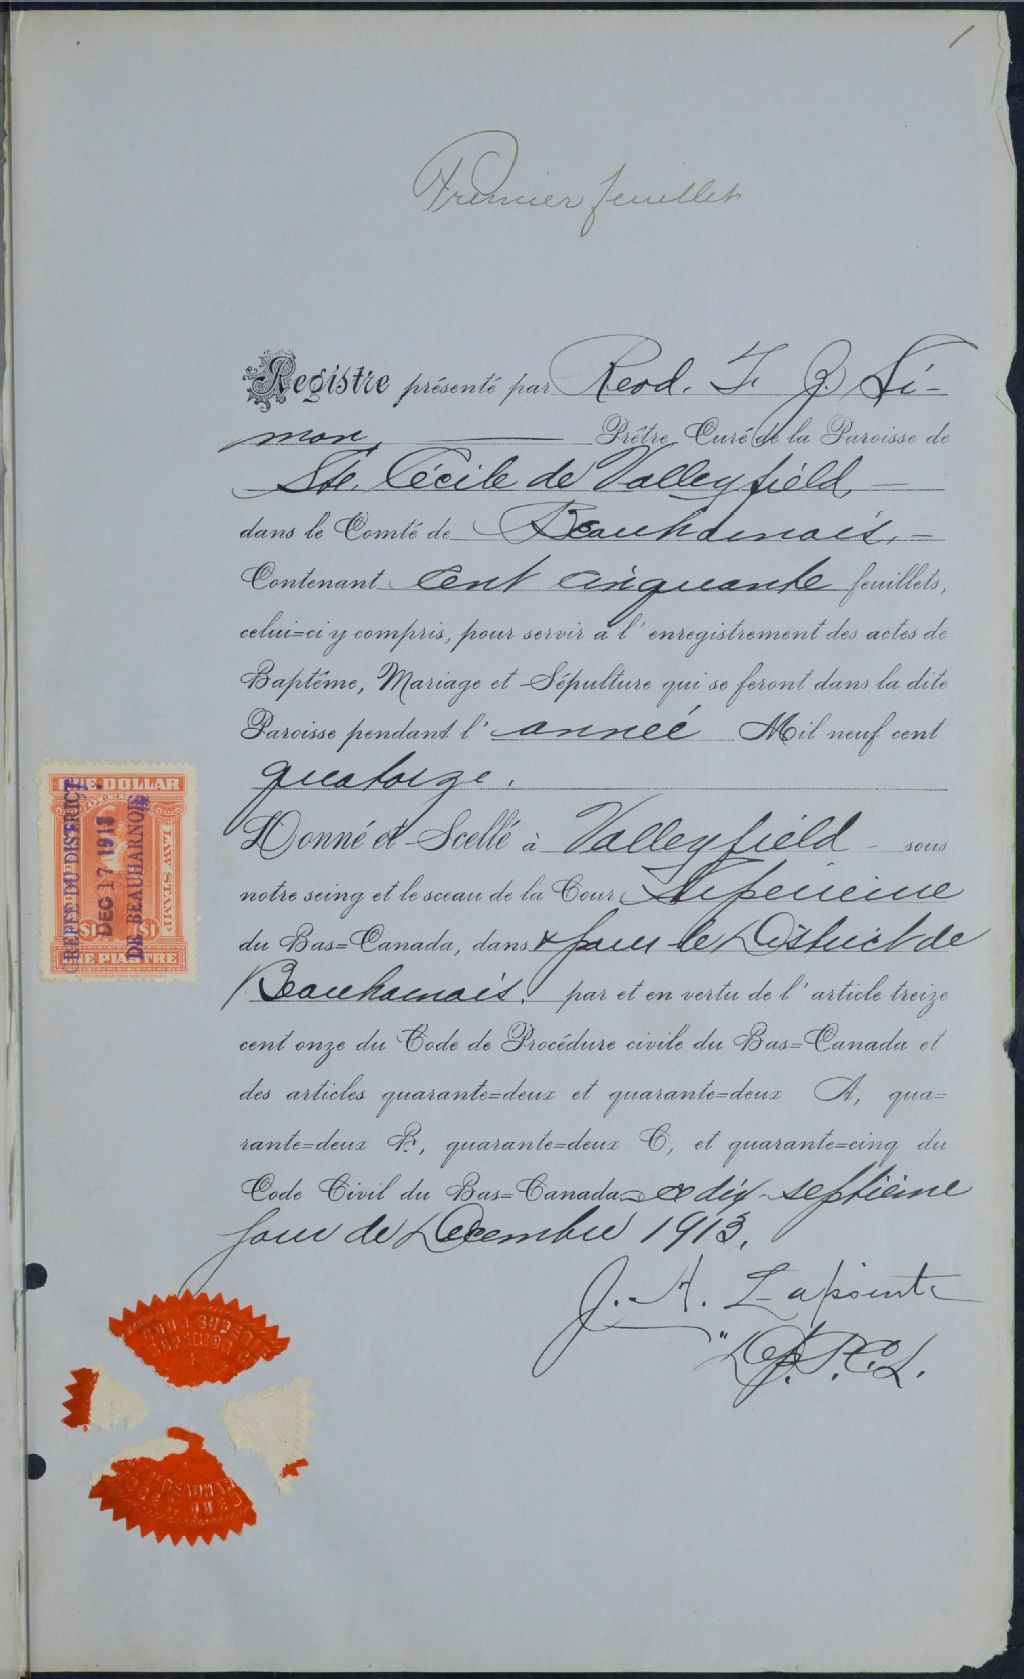 1
Premier feuillet
Registre présenté par Revd. F. J. Si-
mon, Prêtre, Curé de la Paroisse de
Ste. Cécile de Valleyfield,
dans le Comté de Beauharnois,
Contenant cent cinquante feuillets,
celui=ci y compris, pour servir à l'enregistrement des actes de
Baptême, Mariage et Sépulture qui se feront dans la dite
Paroisse pendant l'année Mil neuf cent
quatorze.
ONE DOLLAR
LAW STAMP
$1 $1
UNE PIASTRE
GREFFE DU DISTRICT
DEC 17 1913
DE BEAUHARNOIS
Donné et Scellé à Valleyfield sous
notre seing et le sceau de la Cour Supérieure
du Bas=Canada, dans & pour le District de
Beauharnois. par et en vertu de l'article treize
cent onze du Code de Procédure civile du Bas=Canada et
des articles quarante=deux et quarante=deux A, qua=
rante=deux B, quarante=deux C, et quarante=cinq du
Code Civil du Bas=Canada ce dix-septième
jour de Décembre 1913.
J. A. Lapointe
Dep. P. C. S.